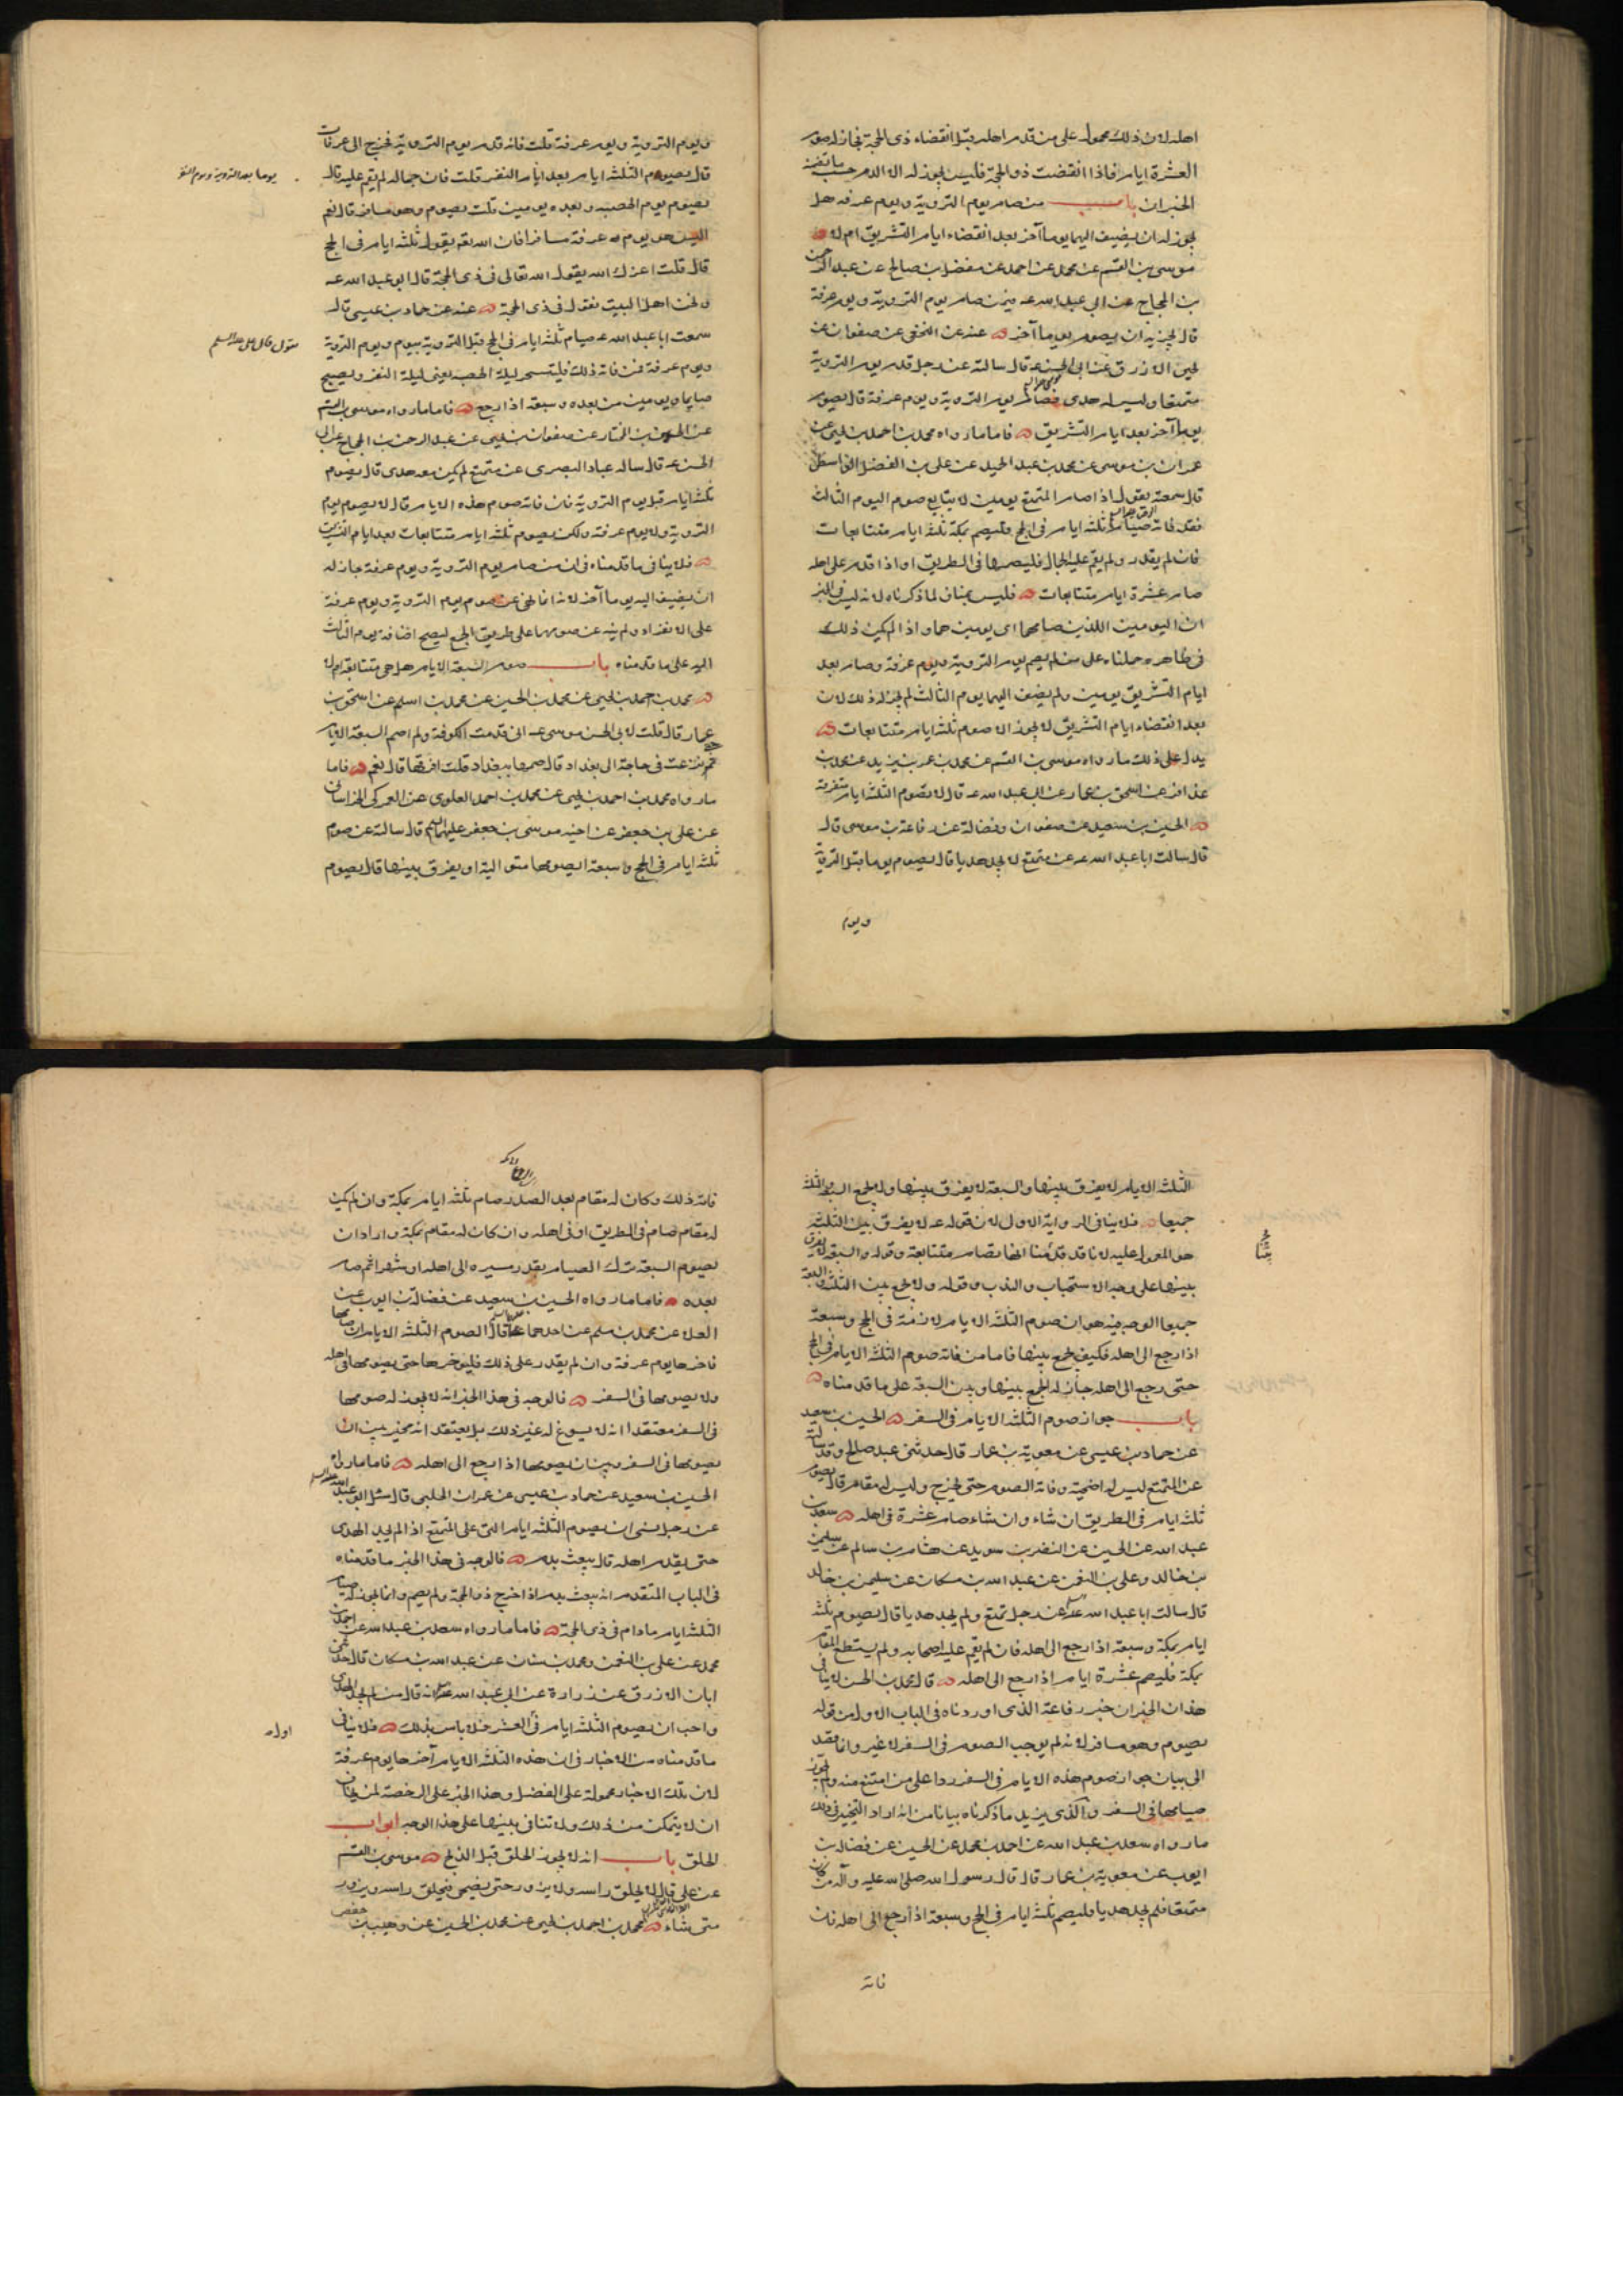 اهله لان ذلك محمول على من قدم اهله قبل انقضاء ذى الحجة فجاز له صوم
العشرة ايام فاذا انقضت ذو الحجة فليس يجوز له الا الدم حسب ما تضمنه
الخبران باب من صام يوم التروية ويوم عرفه هل
يجوز له ان يضيف اليهما يوما آخر بعد انقضاء ايام التشريق ام لا
موسى بن القسم عن محمد عن احمد عن مفضل بن صالح عن عبد الرحمن
بن الحجاج عن ابى عبد الله عه فيمن صام يوم التروية ويوم عرفة
قال يجزيه ان يصوم يوما آخر عنه عن النخعى عن صفوان عن
يحيى الازرق عن ابى الحسن عه قال سالته عن رجل قدم يوم التروية
متمتعا وليس له هدى فصام يوم التروية ويوم عرفة قال يصوم
يوما آخر بعد ايام التشريق فاما ما رواه محمد بن احمد بن يحيى عن
عمران بن موسى عن محمد بن عبد الحميد عن على بن الفضل الواسطى
قال سمعته يقول اذا صام المتمتع يومين لا يتابع صوم اليوم الثالث
فقد فاته صيام ثلثه ايام فى الحج فليصم بمكة ثلثه ايام متتابعات
فان لم يقدر ولم يقم عليه الجمال فليصمها فى الطريق او اذا قدم على اهله
صام عشرة ايام متتابعات فليس بمناف لما ذكرناه لانه ليس فى الخبر
ان اليومين اللذين صامهما اى يومين هما و اذا لم يكن ذلك
فى ظاهره حملناه على من لم يصم يوم التروية ويوم عرفة وصام بعد
ايام التشريق يومين ولم يضف اليهما يوم الثالث لم يجز له ذلك لان
بعد انقضاء ايام التشريق لا يجوز الا صوم ثلثه ايام متتابعات
يدل على ذلك ما رواه موسى بن القسم عن محمد بن عمر بن يزيد عن محمد بن
عذافر عن اسحق بن عمار عن ابى عبد الله عه قال لا تصوم الثلثه ايام متفرقة
الحسين بن سعيد عن صفوان وفضالة عن رفاعة بن موسى قال
قال سالت ابا عبد الله عه عن متمتع لا يجد هديا قال يصوم يوما قبل التروية
ويوم
ويوم التروية ويوم عرفة قلت فانه قدم يوم التروية فخرج الى عرفات
قال يصوم الثلثه ايام بعد ايام النفر قلت فان جماله لم يقم عليه قال
يوما بعد التروية ويوم النفر
يصوم يوم الحصبه وبعده يومين قلت يصوم وهو مسافر قال نعم
اليس هو يوم عرفة مسافرا فان الله تعه يقول ثلثه ايام فى الحج
قال قلت اعزك الله يقول الله تعالى فى ذى الحجة قال ابو عبد الله عه
ونحن اهل البيت نقول فى ذى الحجة عنه عن حماد بن عيسى قال
سمعت ابا عبد الله عه صيام ثلثه ايام فى الحج قبل التروية بيوم ويوم التروية
يقول قال على عليه السلم
ويوم عرفة فمن فاته ذلك فليتسحر ليلة الحصبه يعنى ليلة النفر ويصبح
صايما ويومين من بعده وسبعة اذا رجع فاما ما رواه موسى بن القسم
عن الحسن بن المختار عن صفوان بن يحيى عن عبد الرحمن بن الحجاج عن ابى
الحسن عه قال ساله عباد البصرى عن متمتع لم يكن معه هدى قال يصوم
ثلثه ايام قبل يوم التروية فان فاته صوم هذه الايام قال لا يصوم يوم
التروية ولا يوم عرفة ولكن يصوم ثلثه ايام متتابعات بعد ايام التشريق
فلا ينافى ما قدمناه فى ان من صام يوم التروية ويوم عرفة جاز له
ان يضيف اليه يوما آخر لانه انما نهى عن صوم يوم التروية ويوم عرفة
على الانفراد ولم ينه عن صومهما على طريق الجمع ليصح اضافة يوم الثالث
اليه على ما قدمناه باب صوم السبعة الايام هل هى متتابعة ام لا
محمد بن احمد بن يحيى عن محمد بن الحسين عن محمد بن اسلم عن اسحق بن
عمار قال قلت لابى الحسن موسى عه انى قدمت الكوفة ولم اصم السبعة الايام
حتى نزعت فى حاجة الى بغداد قال صمها ببغداد قلت افرقها قال نعم فاما
ما رواه محمد بن احمد بن يحيى عن محمد بن احمد العلوى عن العمركى الخراسانى
عن على بن جعفر عن اخيه موسى بن جعفر عليهما السلم قال سالته عن صوم
ثلثه ايام فى الحج وسبعة ايصومها متوالية او يفرق بينها قال يصوم
الثلثه الايام لا يفرق بينها والسبعة لا يفرق بينها ولا يجمع السبعة والثلثه
جميعا فلا ينافى الرواية الاولى لان قوله عه لا يفرق بين الثلثه
هو المعول عليه لانا قد قدمنا انها تصام متتابعة وقوله والسبعة لا يفرق
بينها على وجه الاستحباب والندب وقوله ولا يجمع بين الثلثه والسبعة
جميعا الوجه فيه هو ان صوم الثلثه الايام لازمة فى الحج وسبعة
اذا رجع الى اهله فكيف يجمع بينها فاما من فاته صوم الثلثه الايام فى الحج
حتى رجع الى اهله جاز له الجمع بينها وبين السبعة على ما قدمناه
باب جواز صوم الثلثه الايام فى السفر الحسين بن سعيد
عن حماد بن عيسى عن معوية بن عمار قال حدثنى عبد صالح وقد سالته
عن المتمتع ليس له اضحية وفاته الصوم حتى يخرج وليس له مقام قال يصوم
ثلثه ايام فى الطريق ان شاء وان شاء صام عشرة فى اهله سعد بن
عبد الله عن الحسين عن النضر بن سويد عن هشام بن سالم عن سليمن
بن خالد وعلى بن النعمن عن عبد الله بن مسكان عن سليمن بن خالد
قال سالت ابا عبد الله عه عن رجل تمتع ولم يجد هديا قال يصوم ثلثه
ايام بمكة وسبعة اذا رجع الى اهله فان لم يقم عليه اصحابه ولم يستطع المقام
بمكة فليصم عشرة ايام اذا رجع الى اهله قال محمد بن الحسن لا ينافى
هذان الخبران خبر رفاعة الذى اوردناه فى الباب الاول من قوله
يصوم وهو مسافر لانه لم يوجب الصوم فى السفر لا غير وانما قصد
الى بيان جواز صوم هذه الايام فى السفر ردا على من امتنع منه ولم يجوز
صيامها فى السفر والذى يزيد ما ذكرناه بيانا من انه اراد التخيير فى ذلك
ما رواه سعد بن عبد الله عن احمد بن محمد عن الحسين عن فضالة بن
ايوب عن معوية بن عمار قال قال رسول الله صلى الله عليه وآله من كان
متمتعا فلم يجد هديا فليصم ثلثه ايام فى الحج وسبعة اذا رجع الى اهله فان
فاته
فاته ذلك وكان له مقام بعد الصدر صام ثلثه ايام بمكة وان لم يكن
له مقام صام فى الطريق او فى اهله وان كان له مقام بمكة واراد ان
يصوم السبعة ترك الصيام بقدر مسيره الى اهله او شهرا ثم صام
بعده فاما ما رواه الحسين بن سعيد عن فضالة بن ايوب عن
العلا عن محمد بن مسلم عن احدهما قال الصوم الثلثه الايام ان صامها
فاخرها يوم عرفة وان لم يقدر على ذلك فليؤخرها حتى يصومها فى اهله
ولا يصومها فى السفر فالوجه فى هذا الخبر انه لا يجوز له صومها
فى السفر معتقدا انه لا يسوغ له غير ذلك بل يعتقد انه مخير بين ان
يصومها فى السفر وبين ان يصومها اذا رجع الى اهله فاما ما رواه
الحسين بن سعيد عن حماد بن عيسى عن عمران الحلبى قال سئل ابو عبد الله عليه السلم
عن رجل نسى ان يصوم الثلثه ايام التى على المتمتع اذا لم يجد الهدى
حتى يقدم اهله قال يبعث بدم فالوجه فى هذا الخبر ما قدمناه
فى الباب المتقدم انه يبعث بدم اذا خرج ذو الحجة ولم يصم وانما يجوز له صيام
الثلثه ايام ما دام فى ذى الحجة فاما ما رواه سعد بن عبد الله عن احمد بن
محمد عن على بن النعمن ومحمد بن سنان عن عبد الله بن مسكان قال حدثنى
ابان الازرق عن زرارة عن ابى عبد الله عه انه قال من لم يجد الهدى
واحب ان يصوم الثلثه ايام فى العشر فلا باس بذلك فلا ينافى
اول
ما قدمناه من الاخبار فى ان هذه الثلثه الايام آخرها يوم عرفة
لان تلك الاخبار محمولة على الفضل وهذا الخبر على الرخصة لمن يخاف
ان لا يتمكن من ذلك ولا تنافى بينها على هذا الوجه ابواب
الحلق باب انه لا يجوز الحلق قبل الذبح موسى بن القسم
عن على قال لا يحلق راسه ولا يزور حتى يضحى فيحلق راسه ويزور
متى شاء محمد بن احمد بن يحيى عن محمد بن الحسين عن وهيب بن حفص